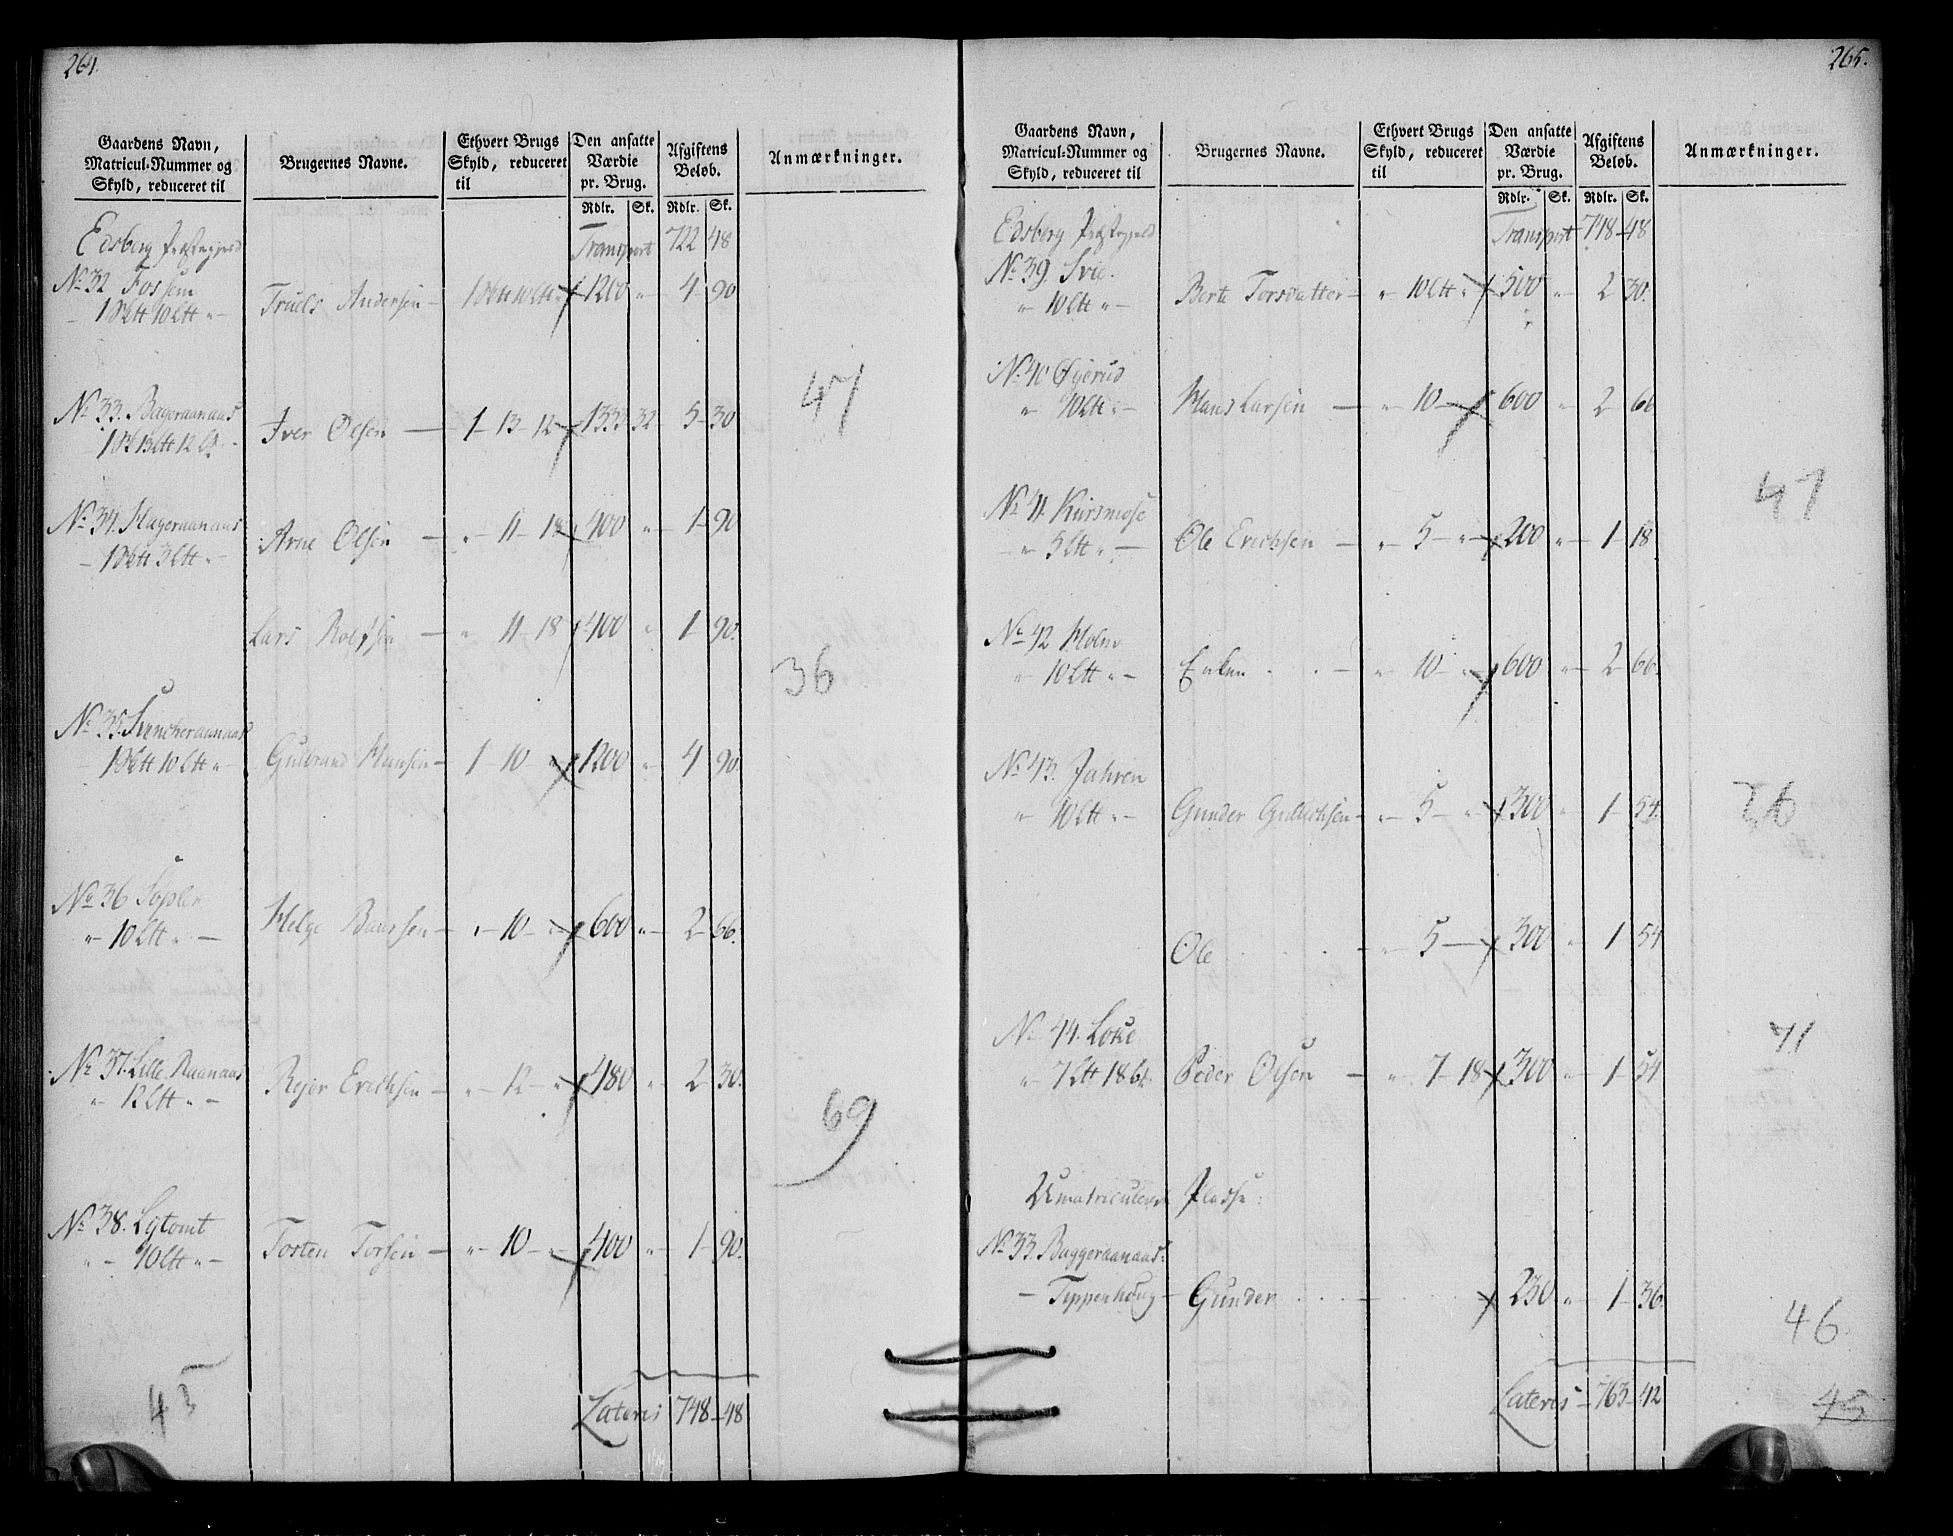 264.
Gaardens Navn, Matricul-Nummer og Skyld, reduceret til
Brugernes Navne.
Ethvert Brugs Skyld, reduceret til
Den ansatte Værdie pr. Brug.
Afgiftens Beløb.
Anmærkninger.
Rdlr. Sk. Rdlr. Sk.
Edsberg Præstegjeld Transport 722 48
No 32 Fossum
1 10 Truels Andersen 1200 " 4 90
No 33. Baggeraanaas
1 13 12 Iver Olsen 1 13 12 1333 32 5 30
47
No 34. Hageraanaas
1 3 Arne Olsen " 11 18 400 " 1 90
Lars Rolfsen " 11 18 400 " 1 90.
36
No 35.
1 10 Gulbrand Hansen 1 10 " 1200 " 4 90
No 36
" 10 " Helge 10 600 " 2 66.
No 37. Lille Raanaas
" 12 " Rejer Erichsen " 12 " 480 " 2 30.
69
No 38. Lytomt
" 10 " Torsten Torsen " 10 " 400 " 1 90.
45
Lateris 748 48
265.
Gaardens Navn, Matricul-Nummer og Skyld, reduceret til
Brugernes Navne.
Ethvert Brugs Skyld, reduceret til
Den ansatte Værdie pr. Brug.
Afgiftens Beløb.
Anmærkninger.
Rdlr. Sk. Rdlr. Sk.
Edsberg Præstegjeld Transport 748 48
No 39. Svee.
" 10 " Berte Torsdatter " 10 " 500 " 2 30.
No 40 Øyerud
" 10 " Hans Larsen " 10 600 " 2 66
47
No 41. Kursmose
" 5 " Ole Erichsen " 5 " 200 " 1 18
No 42 Holm
" 10 " Enken " 10 " 600 " 2 66.
No 43. Jahren
" 10 " Gunder " 5 " 300 " 1 54.
36
Ole " 5 300 " 1 54
No 44. Loke
" 7 18 Peder Olsen " 7 18 300 " 1 54
71
Umatriculerede Pladse:
No 33. Baggeraanaas:
Tippenhoug Gunder 230 " 1 36.
46
Lateris 763 42
45